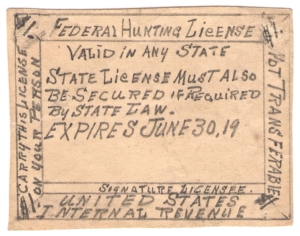 $1.
FEDERAL HUNTING LICENSE
VALID IN ANY STATE
STATE LICENSE MUST ALSO
BE SECURED IF REQUIRED
BY STATE LAW.
EXPIRES JUNE 30, 19
SIGNATURE LICENSEE.
UNITED STATES
INTERNAL REVENUE
CARRY THIS LICENSE
ON YOUR PERSON
NOT TRANSFERABLE